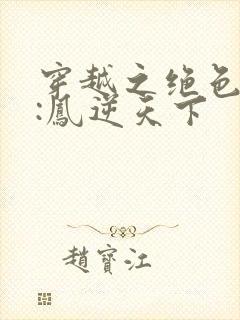 穿越之绝色
:鳳逆天下
趙寳江